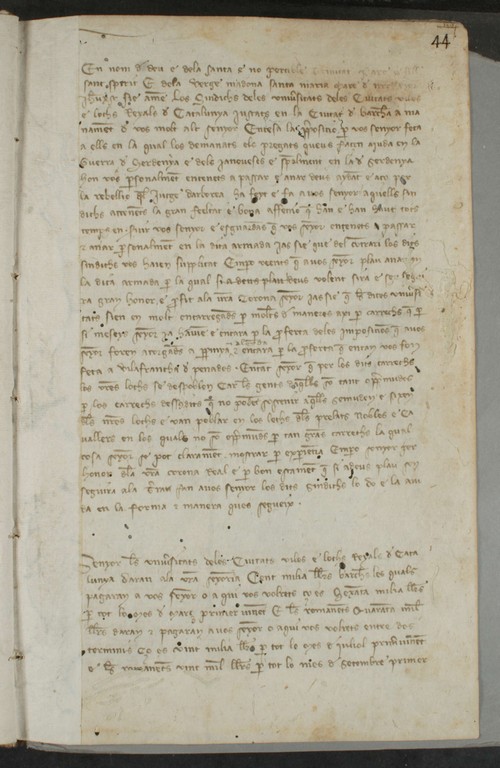 44
En nom de deu e dela santa e no
sant sperit E dela verge madona santa maria
amen Los Sindichs deles universitats deles Ciutats viles
e lochs Reyals de Catalunya justats en la Ciutat de barchna a ma
nament de vos molt alt senyor Entesa la proposicio per vos senyor feta
a ells en la qual los demanats els pregats queus facen ajuda en la
Guerra de Serdenya e dels Janoveses e specialment en la de Serdenya
hon vos personalment entenets a passar e anar deus ajudant e aço per
la rebellio del Jutge darborea ha feyt e fa a vos senyor aquells sin
dichs attenents la gran feeltat e bona affeccio que han e han haut tots
temps en servir vos senyor e esguardan que vos senyor entenets passar
e anar personalment en la dita armada jas sie que del contrari los dits
sindichs vos haien supplicat Empero veents que a vos senyor plau anar en
la dita armada per la qual si a deus plau deus volent sira e
ra gran honor e profit ala vra Corona senyor jassie que les dites universi
tats sien en molt encarregades per moltes de maneres axi per carrechs que per
si meseys senyor ja havien e encara per la proferta deles imposicions que a vos
senyor foren atorgades a e encara per la proferta que encara vos fon
feta a vilafrancha de penades Encara senyor que per los dits carrechs
los vres lochs se despoblen Car les gents daquells son tant opremudes
per los carrechs desusdits que no poden sostenir aquells
dels vres lochs e van poblar en los lochs dels prelats Nobles e Ca
vallers en los quals no son opremuts per tan grans carrechs la qual
cosa senyor se pot clarament mostrar per experiencia Empero senyor per
honor dela vra corona Real e per bon estament que si a deus plau sen
seguira ala terra fan a vos senyor los dits sindichs lo do e la aiu
da en la forma e manera ques segueix
Senyor les universitats deles Ciutats viles e lochs Reyals de Cata
lunya daran ala vra senyoria Cent milia llrs barchs les quals
pagaran a vos senyor o a qui vos volrets ço es Sexanta milia llrs
per tot lo mes de març primer vinent E les romanents Quaranta mil
llrs daran e pagaran a vos senyor o a qui vos volrets entre dos
terminis ço es vint milia llrs per tot lo mes de juliol primer vinent
e les romanents vint mil llrs per tot lo mes de Setembre primer